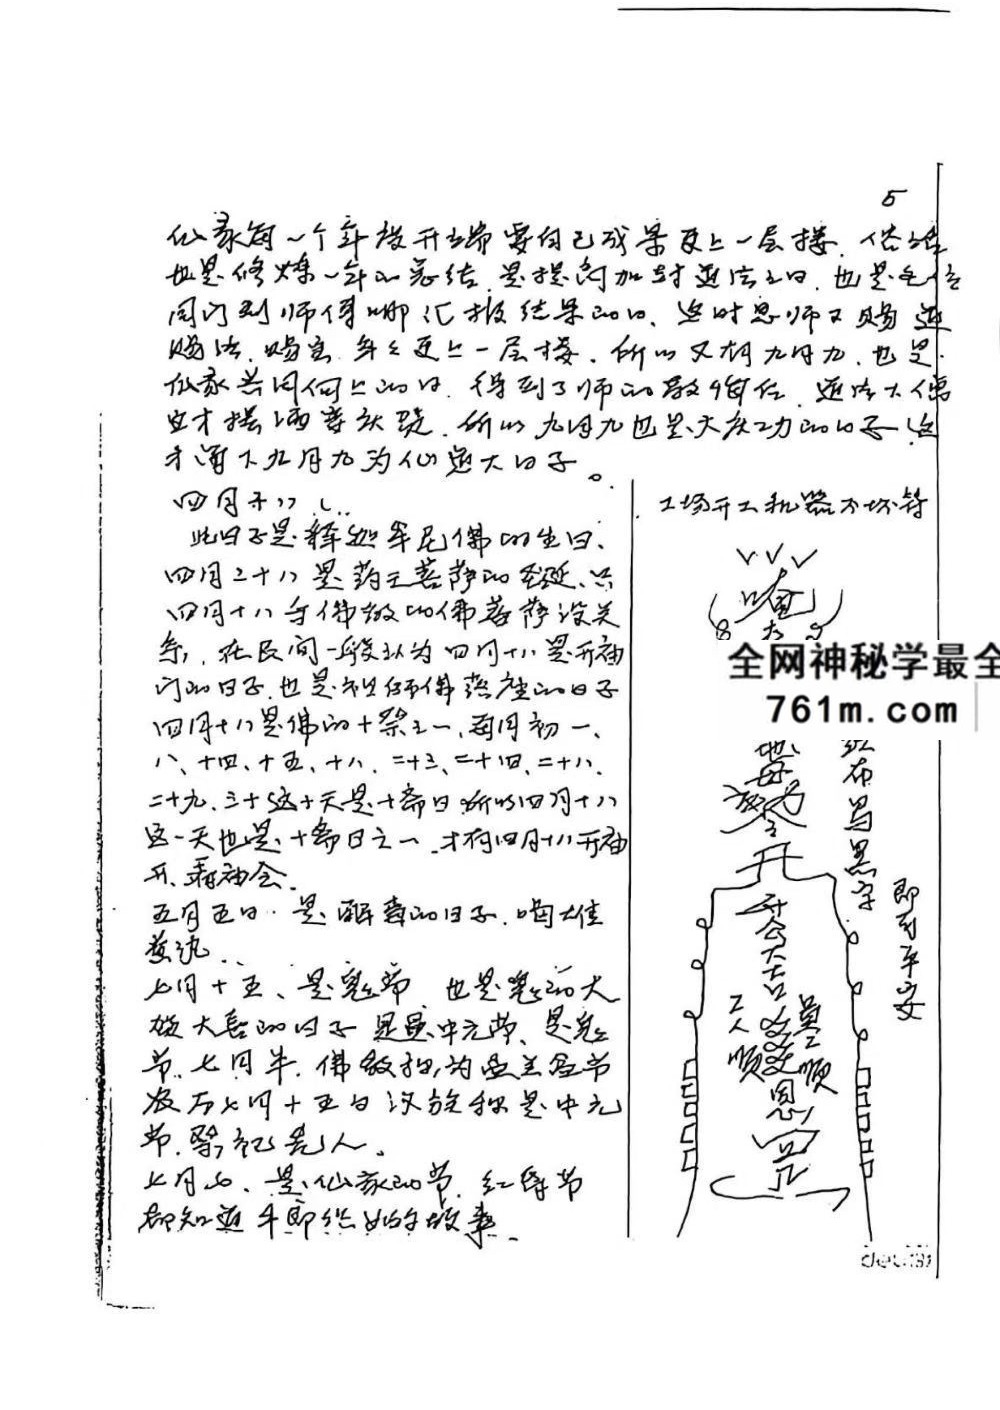 5
仙家每一个年设开端要自己成果更上一层楼、俗话
也是修炼一年的总结、是提高加封道法之日、也是
同门到师傅哪汇报结果的日、这时恩师又赐道
赐法、赐宝、年年更上一层楼、所以又有九月九、也是
仙家共同向上的日、得到了师的教 道法大
才 酒 庆 、所以九月九也是大庆功的日子、这
才留下九月九为仙家大日子。
四月十八、
此日子是释迦牟尼佛的生日、
四月二十八是药王菩萨的圣诞、只
四月十八与佛教的佛菩萨没关
系、在民间一般认为四月十八是开神
门的日子、也是 佛落座的日子
四月十八是佛的十斋之一、每月初一、
八、十四、十五、十八、二十三、二十四、二十八、
二十九、三十这十天是十斋日所以四月十八
这一天也是十斋日之一、才有四月十八开神
开 神会、
五月五日、是解毒的日子、喝雄
黄酒、
七月十五、是鬼节、也是鬼的大
放大 的日子 是中元节、是鬼
节、七月半、佛教称为盂兰盆节
农历七月十五日汉族称是中元
节、祭祀先人。
七月七、是仙家的节、红 节
都知道牛郎织女的故事、
工场开工机器不坏符
布写黑字
即刻平安
地母
开
开仓大吉
工人顺
顺
全网神秘学最全
761m.com